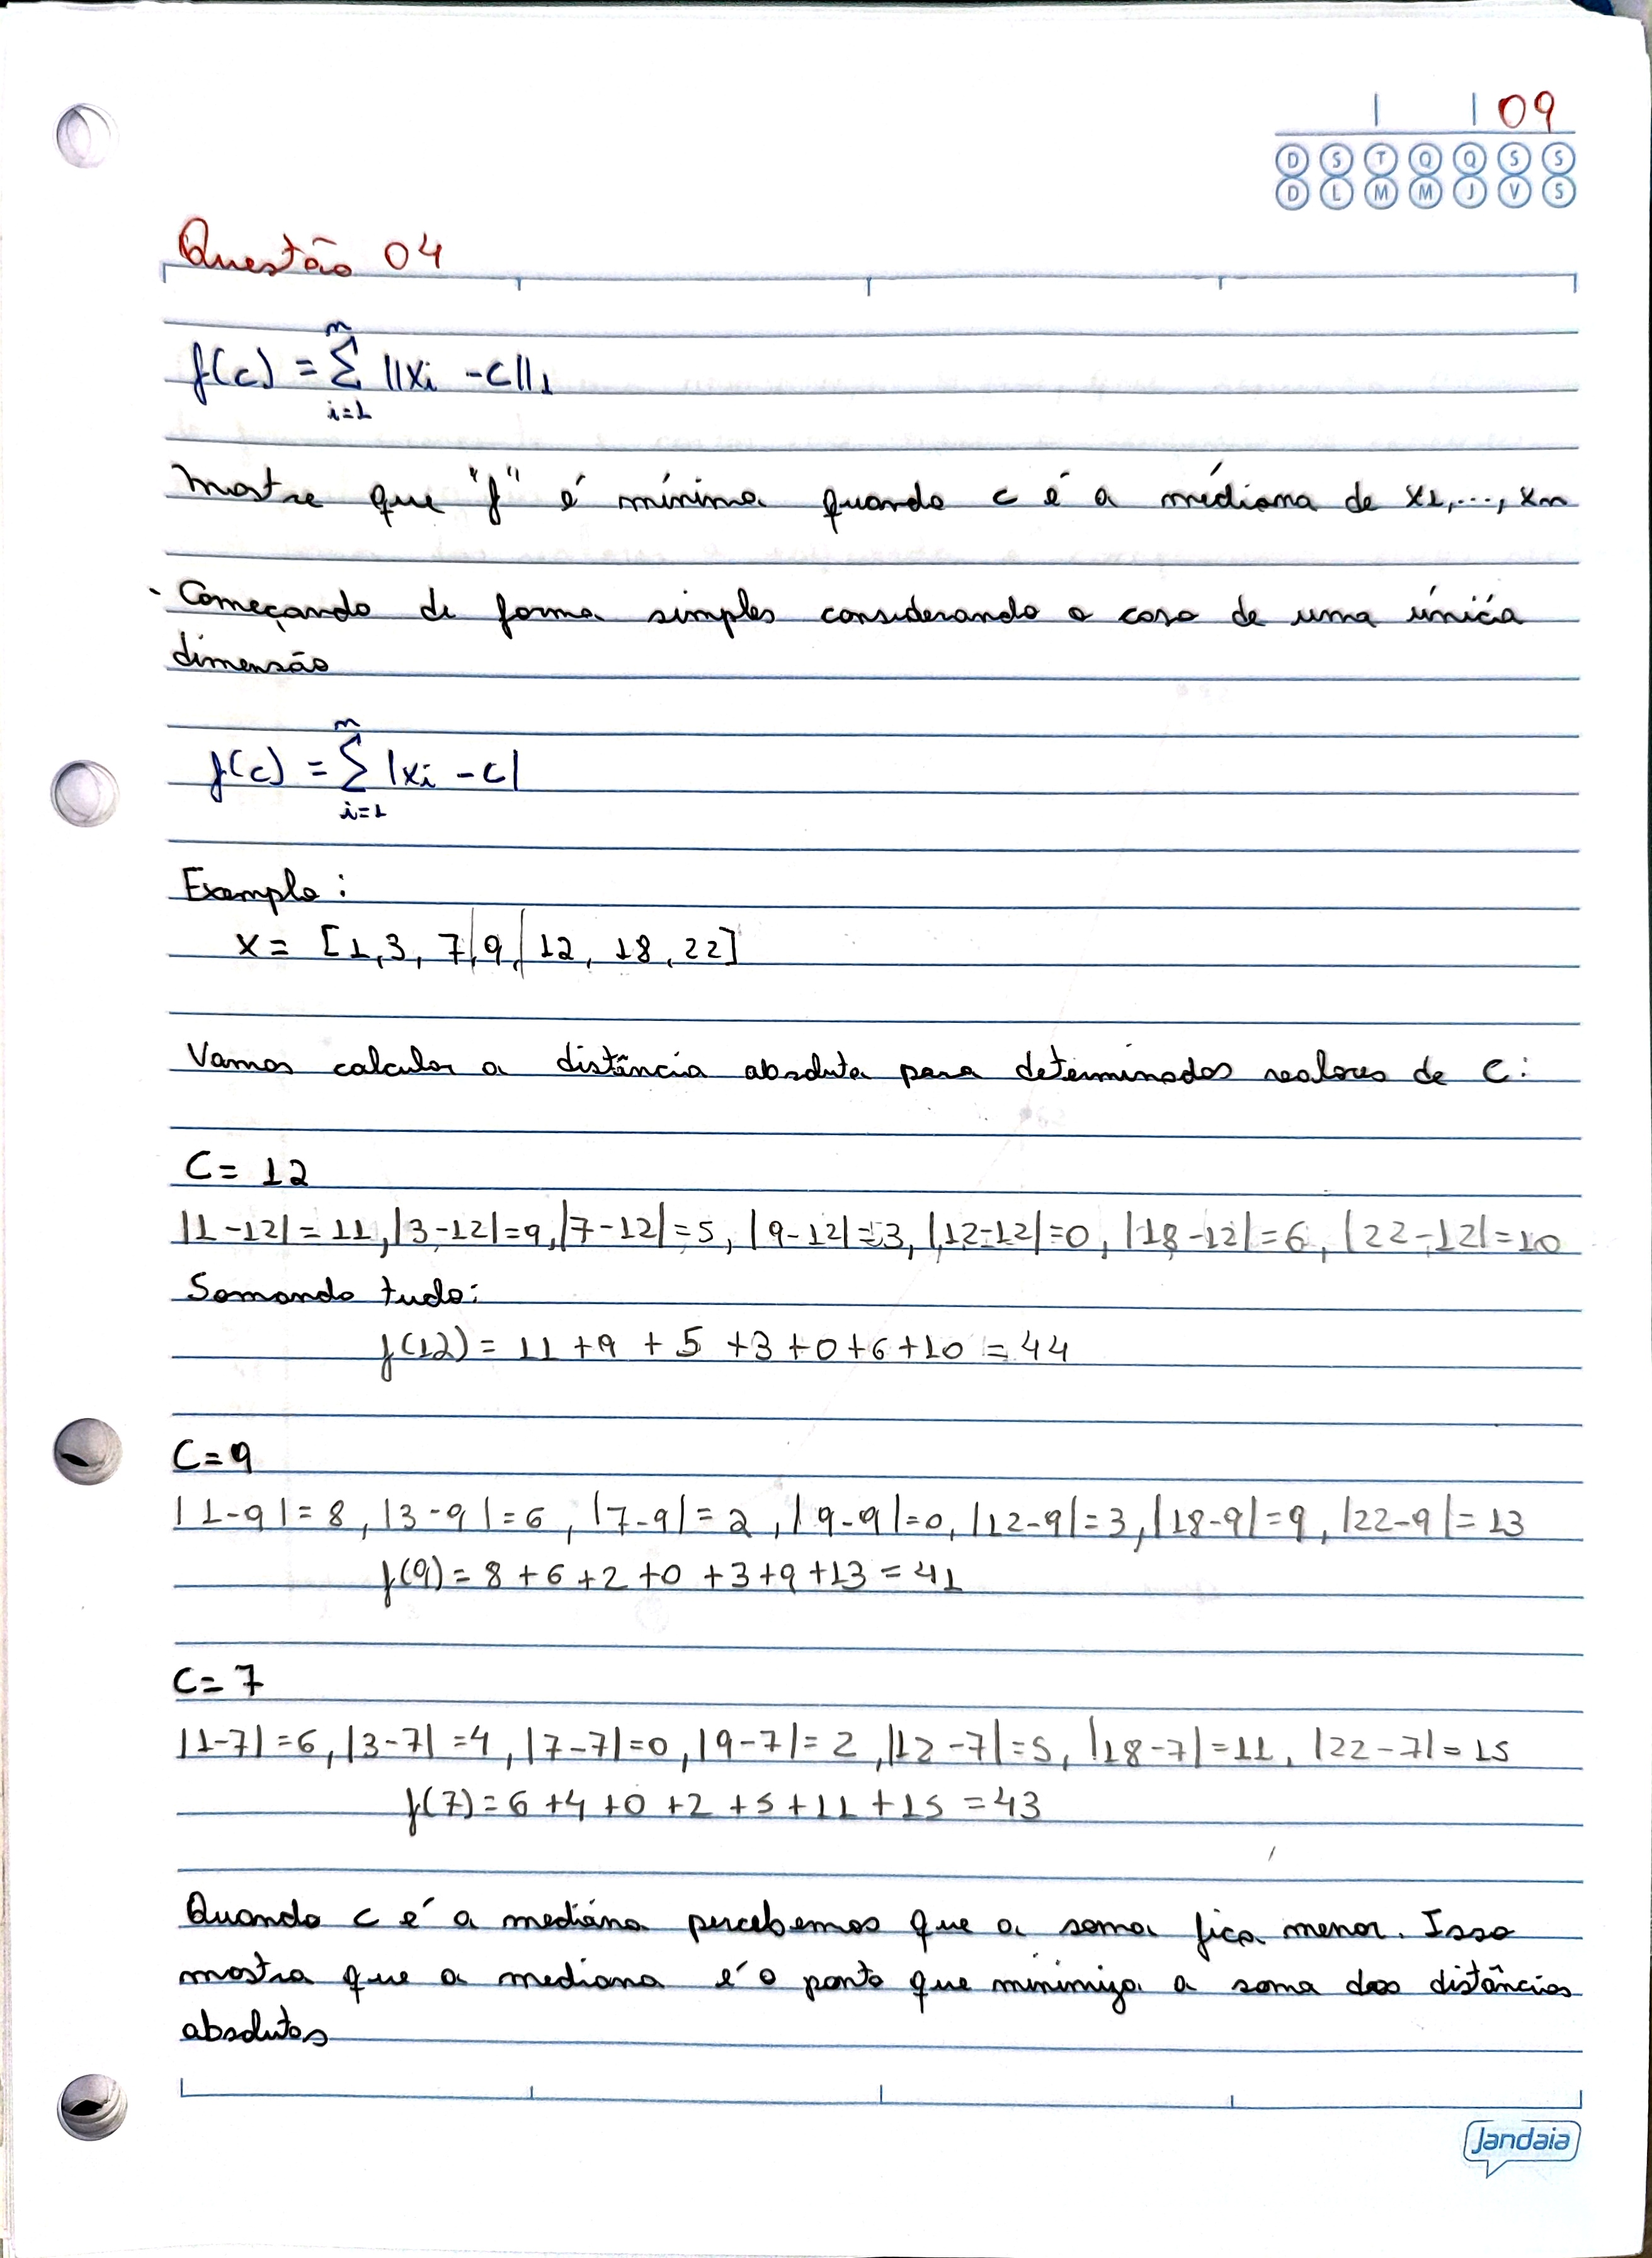 09
D S T Q Q S S
D L M M J V S
Questão 04
f(c) = n∑i=1 ||xi - c||1
Mostre que "f" é mínima quando c é a médiana de x1,..., xn
Começando de forma simples considerando o caso de uma única
dimensão
f(c) = n∑i=1 |xi - c|
Exemplo:
X = [1, 3, 7, 9, 12, 18, 22]
Vamos calcular a distância absoluta para determinados valores de C:
C = 12
|1-12| = 11, |3-12| = 9, |7-12| = 5, |9-12| = 3, |12-12| = 0, |18-12| = 6, |22-12| = 10
Somando tudo:
f(12) = 11 + 9 + 5 + 3 + 0 + 6 + 10 = 44
C = 9
|1-9| = 8, |3-9| = 6, |7-9| = 2, |9-9| = 0, |12-9| = 3, |18-9| = 9, |22-9| = 13
f(9) = 8 + 6 + 2 + 0 + 3 + 9 + 13 = 41
C = 7
|1-7| = 6, |3-7| = 4, |7-7| = 0, |9-7| = 2, |12-7| = 5, |18-7| = 11, |22-7| = 15
f(7) = 6 + 4 + 0 + 2 + 5 + 11 + 15 = 43
Quando c é a mediana percebemos que a soma fica menor. Isso
mostra que a mediana é o ponto que minimiza a soma das distâncias
absolutas
Jandaia